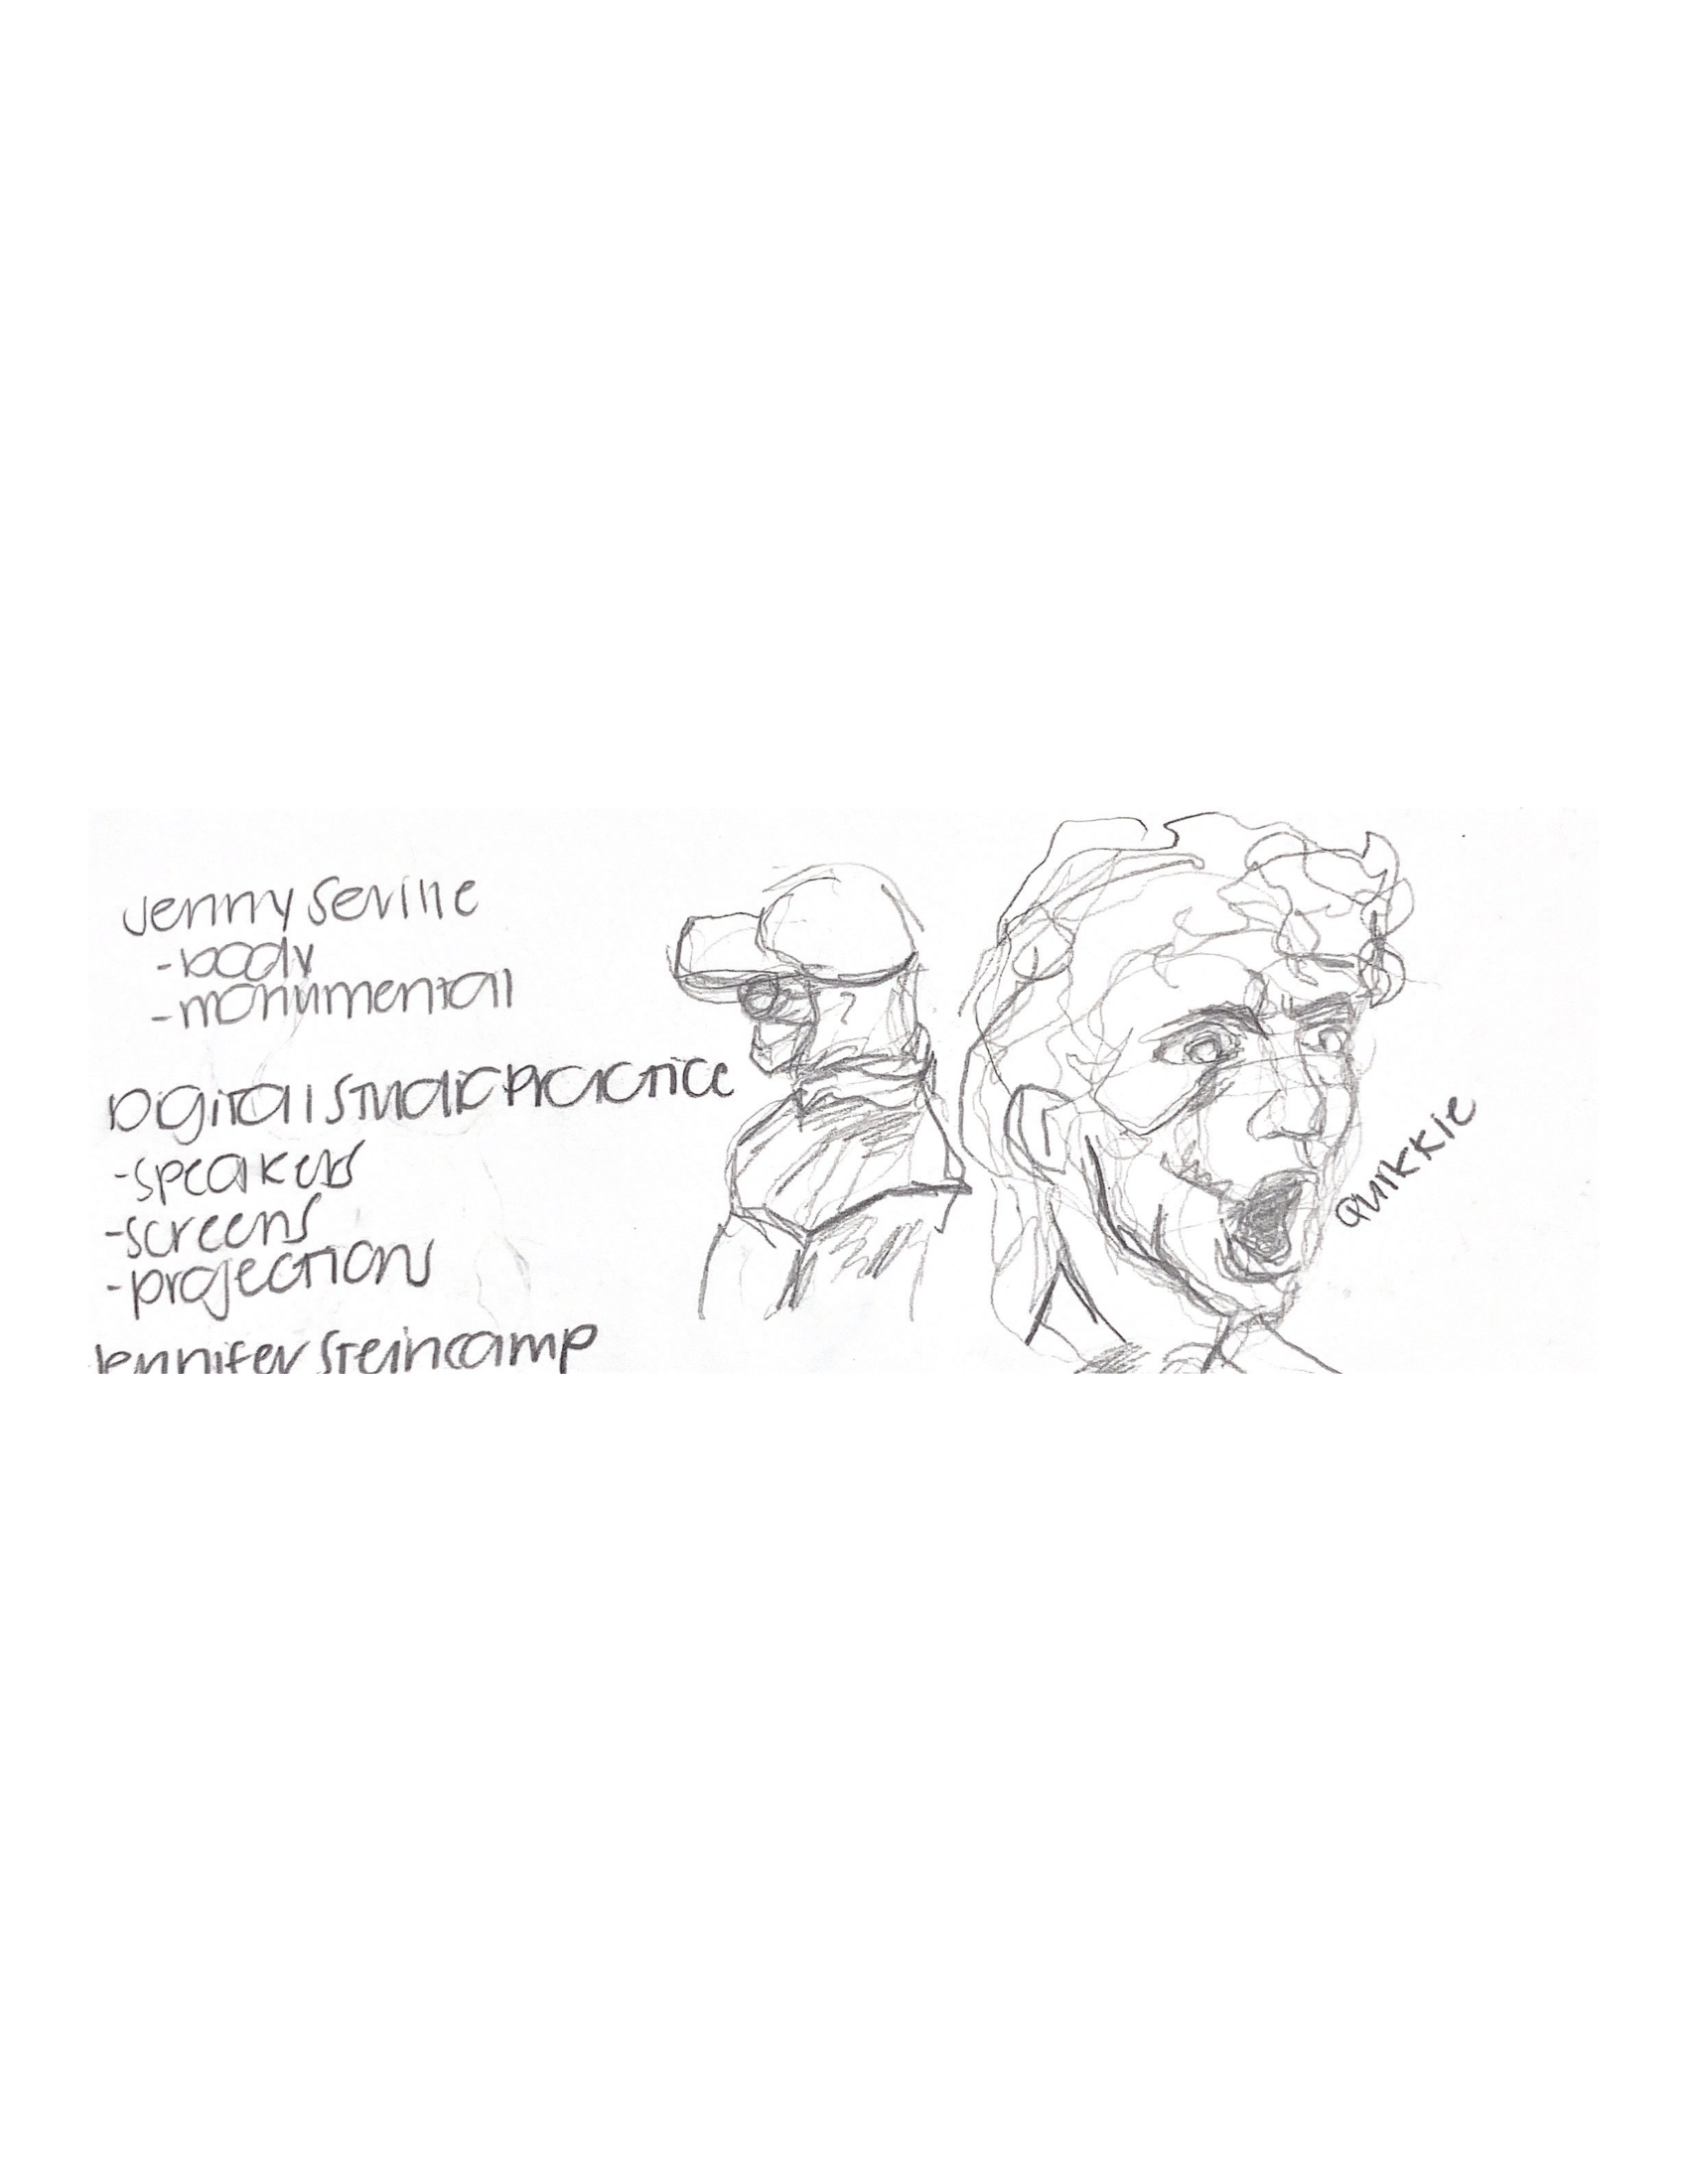 Jenny Seville
-body
-monumental
Digital Studio Practice
-speakers
-screens
-projections
Jennifer Steincamp
Quikkie